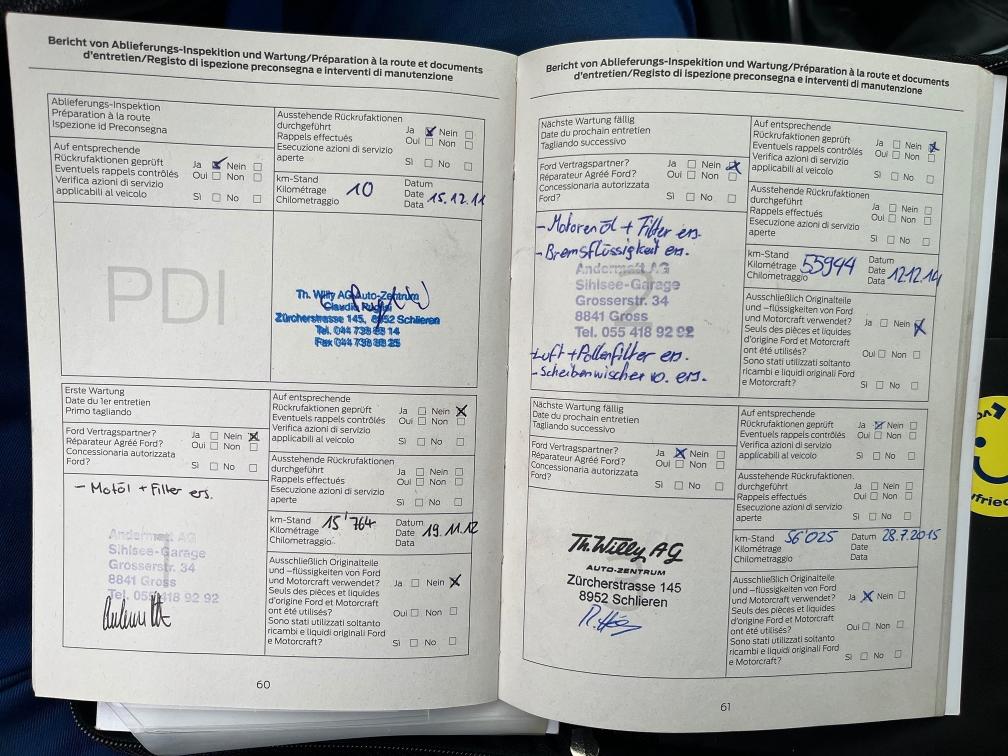 Bericht von Ablieferungs-Inspekition und Wartung/Préparation à la route et documents
d'entretien/Registo di ispezione preconsegna e interventi di manutenzione
Ablieferungs-Inspektion
Préparation à la route
Ispezione id Preconsegna
Ausstehende Rückrufaktionen
durchgeführt
Rappels effectués
Esecuzione azioni di servizio
aperte
Ja Nein
Oui Non
Sì No
Auf entsprechende
Rückrufaktionen geprüft
Eventuels rappels contrôlés
Verifica azioni di servizio
applicabili al veicolo
Ja Nein
Oui Non
Sì No
km-Stand
Kilométrage
Chilometraggio
10
Datum
Date
Data
15.12.11
PDI
Th. Willy AG Auto-Zentrum
Claudia
Zürcherstrasse 145, 8952 Schlieren
Tel. 044 738 14
Fax 044 738 38 25
Erste Wartung
Date du 1er entretien
Primo tagliando
Auf entsprechende
Rückrufaktionen geprüft
Eventuels rappels contrôlés
Verifica azioni di servizio
applicabili al veicolo
Ja Nein
Oui Non
Sì No
Ford Vertragspartner?
Réparateur Agréé Ford?
Concessionaria autorizzata
Ford?
Ja Nein
Oui Non
Sì No
Ausstehende Rückrufaktionen
durchgeführt
Rappels effectués
Esecuzione azioni di servizio
aperte
Ja Nein
Oui Non
Sì No
- Motöl + Filter ers.
Andermatt AG
Sihlsee-Garage
Grosserstr. 34
8841 Gross
Tel. 055 418 92 92
km-Stand
Kilométrage
Chilometraggio
15'764
Datum
Date
Data
19.11.12
Ausschließlich Originalteile
und –flüssigkeiten von Ford
und Motorcraft verwendet?
Seuls des pièces et liquides
d'origine Ford et Motorcraft
ont été utilisés?
Sono stati utilizzati soltanto
ricambi e liquidi originali Ford
e Motorcraft?
Ja Nein
Oui Non
Sì No
60
Bericht von Ablieferungs-Inspekition und Wartung/Préparation à la route et documents
d'entretien/Registo di ispezione preconsegna e interventi di manutenzione
Nächste Wartung fällig
Date du prochain entretien
Tagliando successivo
Auf entsprechende
Rückrufaktionen geprüft
Eventuels rappels contrôlés
Verifica azioni di servizio
applicabili al veicolo
Ja Nein
Oui Non
Sì No
Ford Vertragspartner?
Réparateur Agréé Ford?
Concessionaria autorizzata
Ford?
Ja Nein
Oui Non
Sì No
Ausstehende Rückrufaktionen
durchgeführt
Rappels effectués
Esecuzione azioni di servizio
aperte
Ja Nein
Oui Non
Sì No
- Motorenöl + Filter ers.
- Bremsflüssigkeit ers.
Andermatt AG
Sihlsee-Garage
Grosserstr. 34
8841 Gross
Tel. 055 418 92 92
- Luft + Pollenfilter ers.
- Scheibenwischer v. ers.
km-Stand
Kilométrage
Chilometraggio
55944
Datum
Date
Data
12.12.14
Ausschließlich Originalteile
und –flüssigkeiten von Ford
und Motorcraft verwendet?
Seuls des pièces et liquides
d'origine Ford et Motorcraft
ont été utilisés?
Sono stati utilizzati soltanto
ricambi e liquidi originali Ford
e Motorcraft?
Ja Nein
Oui Non
Sì No
Nächste Wartung fällig
Date du prochain entretien
Tagliando successivo
Auf entsprechende
Rückrufaktionen geprüft
Eventuels rappels contrôlés
Verifica azioni di servizio
applicabili al veicolo
Ja Nein
Oui Non
Sì No
Ford Vertragspartner?
Réparateur Agréé Ford?
Concessionaria autorizzata
Ford?
Ja Nein
Oui Non
Sì No
Ausstehende Rückrufaktionen
durchgeführt
Rappels effectués
Esecuzione azioni di servizio
aperte
Ja Nein
Oui Non
Sì No
Th. Willy AG
AUTO-ZENTRUM
Zürcherstrasse 145
8952 Schlieren
km-Stand
Kilométrage
Chilometraggio
56'025
Datum
Date
Data
28.7.2015
Ausschließlich Originalteile
und –flüssigkeiten von Ford
und Motorcraft verwendet?
Seuls des pièces et liquides
d'origine Ford et Motorcraft
ont été utilisés?
Sono stati utilizzati soltanto
ricambi e liquidi originali Ford
e Motorcraft?
Ja Nein
Oui Non
Sì No
61